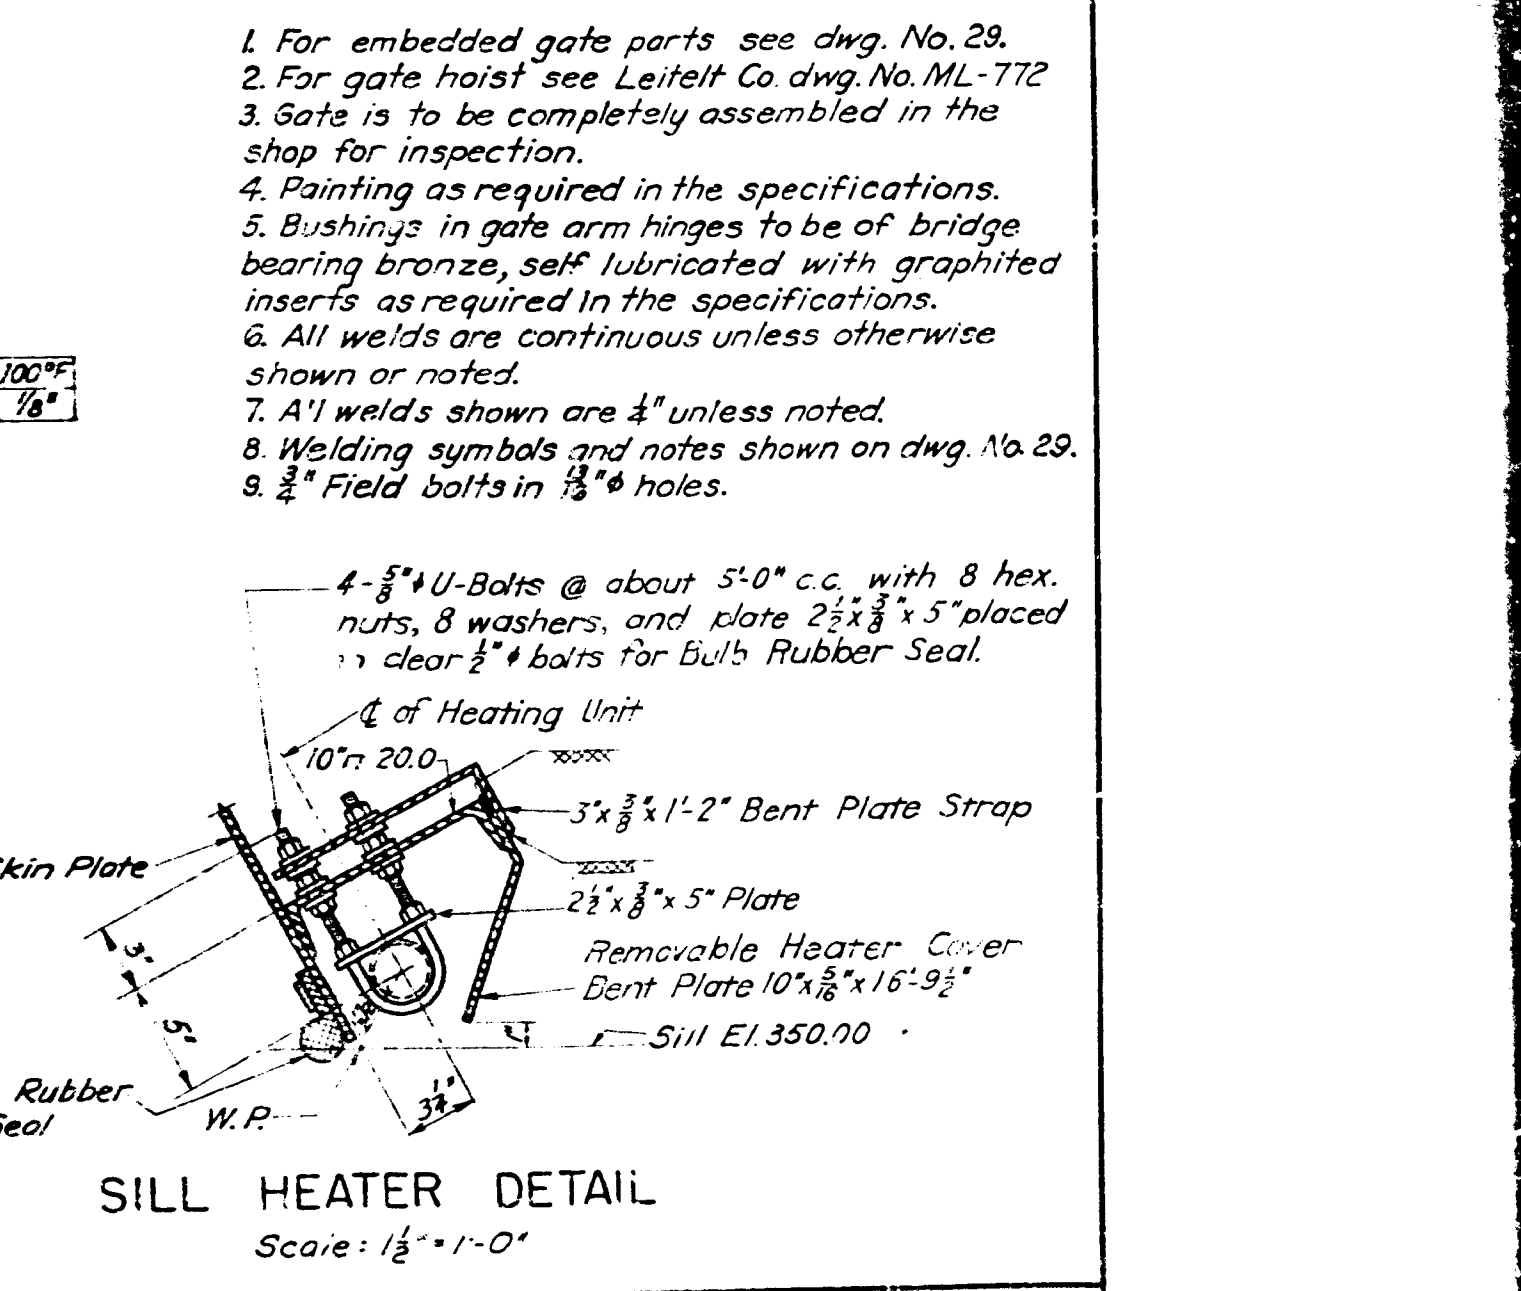 1. For embedded gate parts see dwg. No. 29.
2. For gate hoist see Leitelt Co. dwg. No. ML-772
3. Gate is to be completely assembled in the
shop for inspection.
4. Painting as required in the specifications.
5. Bushings in gate arm hinges to be of bridge
bearing bronze, self lubricated with graphited
inserts as required in the specifications.
6. All welds are continuous unless otherwise
shown or noted.
100°F
1/8"
7. All welds shown are 1/4" unless noted.
8. Welding symbols and notes shown on dwg. No. 29.
9. 3/4" Field bolts in 13/16"ϕ holes.
4-5/8"ϕ U-Bolts @ about 5'-0" c.c. with 8 hex.
nuts, 8 washers, and plate 2 1/2" x 3/8" x 5" placed
clear 1/2"ϕ bolts for Bulb Rubber Seal.
℄ of Heating Unit
10" 20.0
3" x 3/8" x 1'-2" Bent Plate Strap
Skin Plate
2 1/2" x 3/8" x 5" Plate
3"
Removable Heater Cover
Bent Plate 10" x 5/16" x 16'-9 1/2"
5"
Sill El. 350.00
Rubber
Seal
W.P.
3 1/4"
SILL HEATER DETAIL
Scale: 1 1/2" = 1'-0"